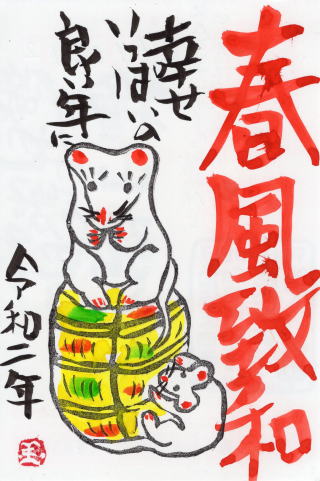 春風致和
幸せ
いっぱいの
良い年に
令和二年